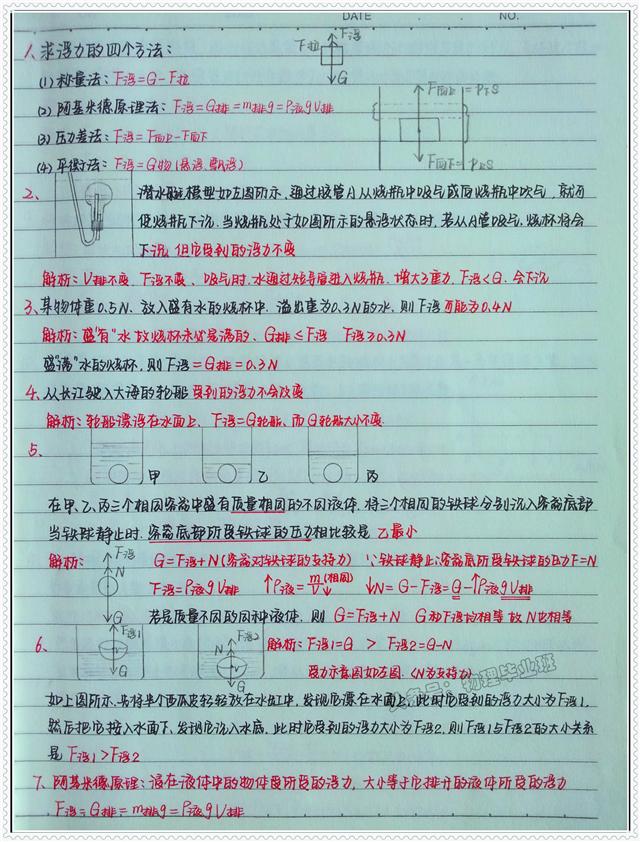 DATE . . NO.
1、求浮力的四个方法:
F拉 F浮
G
(1) 称量法: F浮=G-F拉
(2) 阿基米德原理法: F浮=G排=m排g=ρ液gV排
(3) 压力差法: F浮=F向上-F向下
(4) 平衡法: F浮=G物(悬浮、飘浮)
F向上=P下S
F向下=P上S
2、
潜水艇模型如左图所示,通过胶管A从烧瓶中吸气或向烧瓶中吹气,就可
使烧瓶下沉.当烧瓶处于如图所示的悬浮状态时,若从A管吸气,烧杯将会
下沉 但它受到的浮力不变
解析: V排不变、F浮不变、吸气时,水通过短导管进入烧瓶,增大了重力,F浮<G,会下沉
3、某物体重0.5N、放入盛有水的烧杯中,溢出重为0.3N的水,则F浮可能为0.4N
解析: 盛"有"水故烧杯未必是满的、G排≤F浮 F浮≥0.3N
盛"满"水的烧杯,则F浮=G排=0.3N
4、从长江驶入大海的轮船 受到的浮力不会改变
解析: 轮船漂浮在水面上、F浮=G轮船、而G轮船大小不变.
5、
甲 乙 丙
在甲、乙、丙三个相同容器中盛有质量相同的不同液体,将三个相同的铁球分别沉入容器底部
当铁球静止时.容器底部所受铁球的压力相比较是 乙最小
解析: F浮 N G
G=F浮+N(容器对铁球的支持力) ∵铁球静止∴容器底所受铁球的压力F=N
F浮=ρ液gV排 ↑ρ液=m/V↓(相同) ↓N=G-F浮=G-↑ρ液gV排
若是质量不同的同种液体,则 G=F浮+N G和F浮均相等 故N也相等
6、
F浮1 G
N F浮2 G
解析: F浮1=G > F浮2=G-N
受力示意图如左图.(N为支持力)
如上图所示.另将半个西瓜皮轻轻放在水缸中,发现它漂在水面上,此时它受到的浮力大小为F浮1,
然后把它按入水面下,发现它沉入水底,此时它受到的浮力大小为F浮2,则F浮1与F浮2的大小关系
是 F浮1>F浮2
7、阿基米德原理: 浸在液体中的物体受所受的浮力,大小等于它排开的液体所受的浮力
F浮=G排=m排g=ρ液gV排
头条号: 物理毕业班